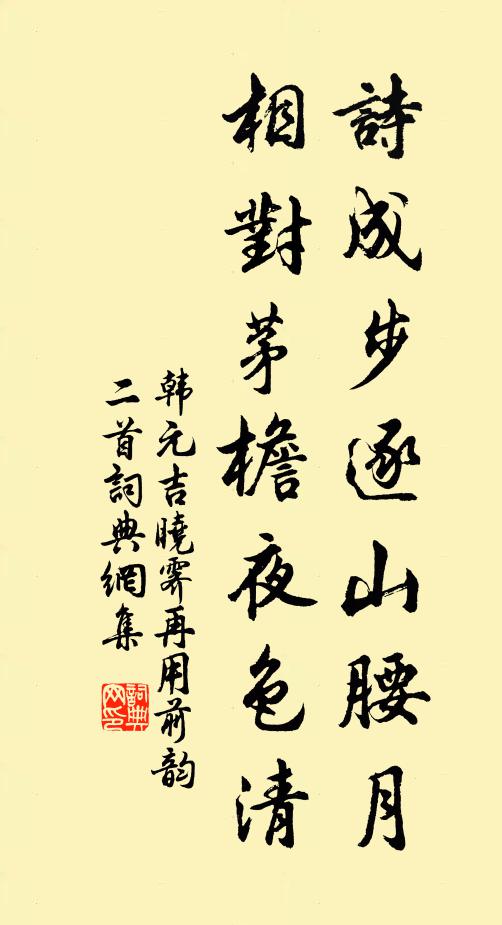 詩成步逐山腰月
相對茅檐夜色清
韩元吉曉霽再用前韵
二首詞典網集
詞典网印